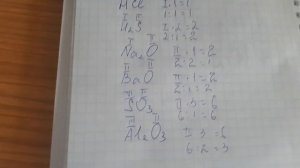 HCl I·1=1
I II 1:1=1
H₂S II·2=2
I II 2:1=2
Na₂O II·1=2
II II 2:2=1
BaO II·1=2
II 2:1=2
SO₃ II·3=6
III II 6:1=6
Al₂O₃ II·3=6
6:2=3